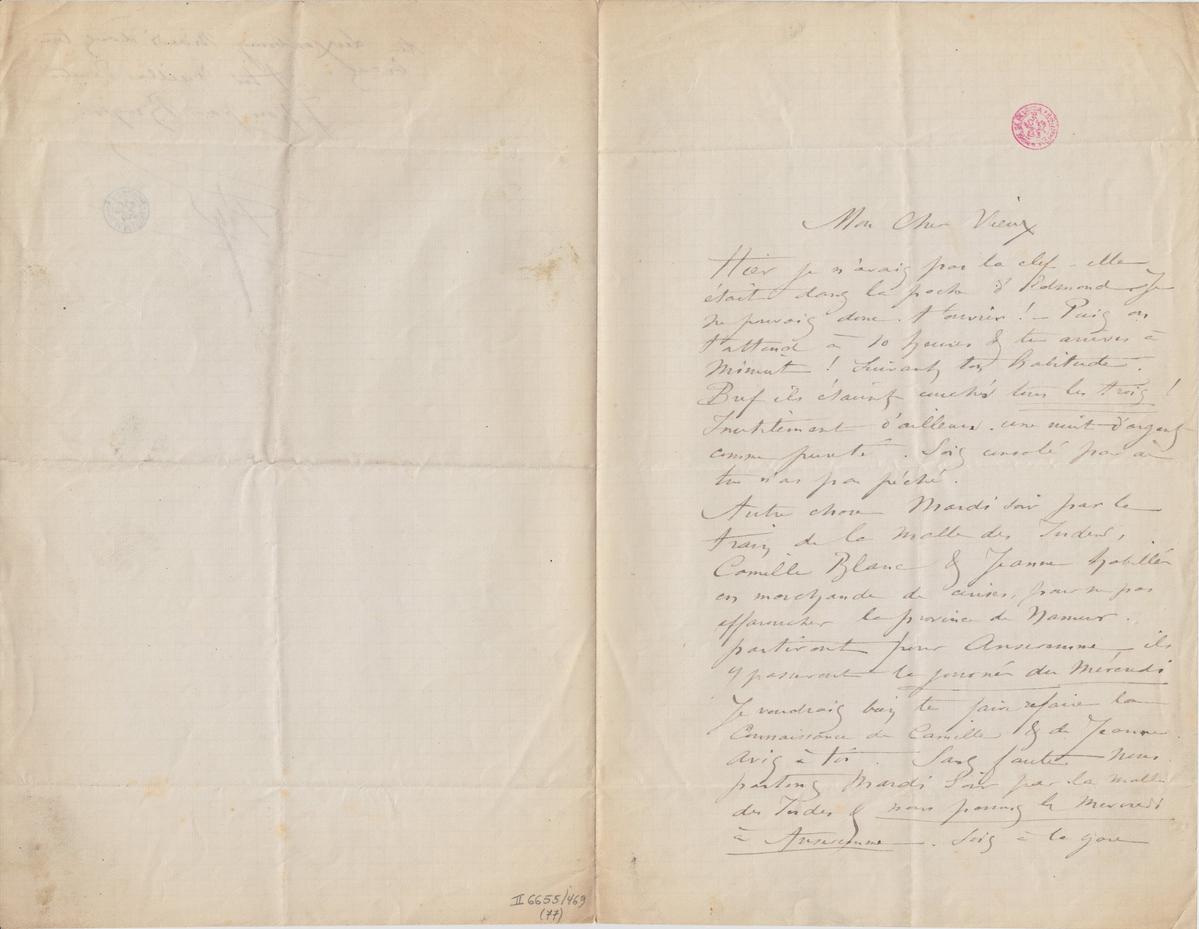 Mon Cher Vieux
Hier je n'avais pas la clef – elle
était dans la poche d'Edmond & Je
ne pouvais donc t'ouvrir ! – Puis on
t'attend à 10 heures & tu arrives à
Minuit ! Suivant ton habitude.
Bref ils étaient couchés tous les trois !
Inutilement d'ailleurs. une nuit d'argent
comme pureté. Sois consolé par là
tu n'as pas péché.
Autre chose Mardi soir par le
train de la Malle des Indes,
Camille Blanc & Jeanne habillée
en marchande de cerises, pour ne pas
effaroucher la province de Namur.
partiront pour Anseremme, ils
y passeront la journée du Mercredi
Je voudrais bien te faire refaire la
Connaissance de Camille & de Jeanne.
Avis à toi. Sans faute nous
partons Mardi Soir par la malle
des Indes & nous passons le Mercredi
à Anseremme. Sois à la gare
II 6655/469
(77)